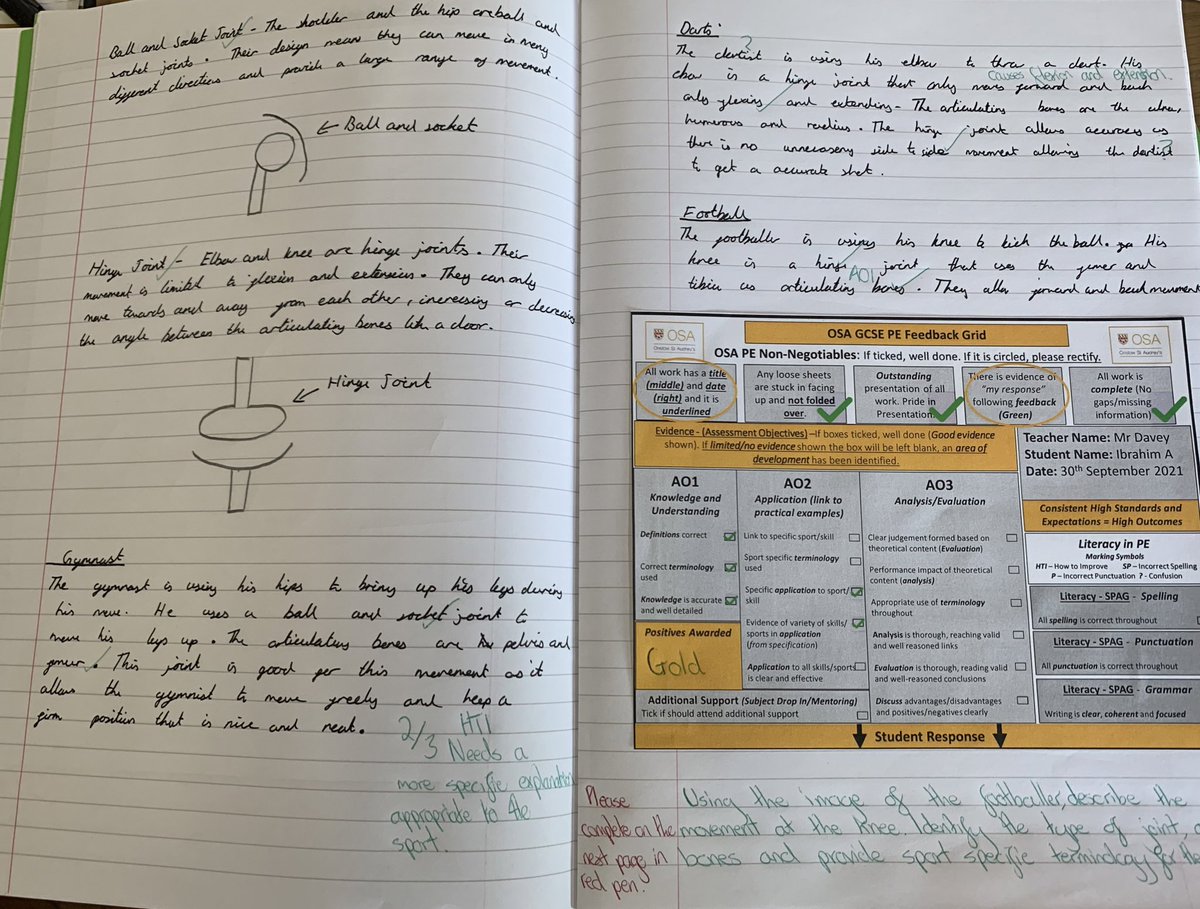 Ball and Socket Joint - The shoulder and the hip are ball and
socket joints. Their design means they can move in many
different directions and provide a large range of movement.
← Ball and socket
Hinge Joint - Elbow and knee are hinge joints. Their
movement is limited to flexion and extension. They can only
move towards and away from each other, increasing or decreasing
the angle between the articulating bones like a door.
Hinge Joint
Gymnast
The gymnast is using his hips to bring up his legs during
his move. He uses a ball and socket joint to
move his legs up. The articulating bones are pelvis and
femur. This joint is good for this movement as it
allows the gymnist to move freely and keep a
firm position that is nice and neat.
2/3 HTI
Needs a
more specific explanation
appropriate to the
sport.
Darts
?
The dartist is using his elbow to throw a dart. His
causes flexion and extension.
elbow is a hinge joint that only moves forward and back
only flexing and extending. The articulating bones are the ulna,
humerous and radius. The hinge joint allows accuracy as
there is no unnecasery side to side movement allowing the dartist
?
to get a accurate shot.
Football
The footballer is using his knee to kick the ball. His
knee is a hinge joint that uses the femer and
AO1
tibia as articulating bones. They allow forward and back movement
OSA
Onslow St Audrey's
OSA GCSE PE Feedback Grid
OSA
Onslow St Audrey's
OSA PE Non-Negotiables: If ticked, well done. If it is circled, please rectify.
All work has a title
(middle) and date
(right) and it is
underlined
Any loose sheets
are stuck in facing
up and not folded
over.
Outstanding
presentation of all
work. Pride in
Presentation.
There is evidence of
"my response"
following feedback
(Green)
All work is
complete (No
gaps/missing
information)
Evidence - (Assessment Objectives) –If boxes ticked, well done (Good evidence
shown). If limited/no evidence shown the box will be left blank, an area of
development has been identified.
Teacher Name: Mr Davey
Student Name: Ibrahim A
Date: 30th September 2021
AO1
Knowledge and
Understanding
Definitions correct
Correct terminology
used
Knowledge is accurate
and well detailed
Positives Awarded
Gold
AO2
Application (link to
practical examples)
Link to specific sport/skill
Sport specific terminology
used
Specific application to sport/
skill
Evidence of variety of skills/
sports in application
(from specification)
Application to all skills/sports
is clear and effective
AO3
Analysis/Evaluation
Clear judgement formed based on
theoretical content (Evaluation)
Performance impact of theoretical
content (analysis)
Appropriate use of terminology
throughout
Analysis is thorough, reaching valid
and well reasoned links
Evaluation is thorough, reading valid
and well-reasoned conclusions
Discuss advantages/disadvantages
and positives/negatives clearly
Consistent High Standards and
Expectations = High Outcomes
Literacy in PE
Marking Symbols
HTI – How to Improve SP – Incorrect Spelling
P – Incorrect Punctuation ? - Confusion
Literacy - SPAG - Spelling
All spelling is correct throughout
Literacy - SPAG - Punctuation
All punctuation is correct throughout
Literacy - SPAG - Grammar
Writing is clear, coherent and focused
Additional Support (Subject Drop In/Mentoring)
Tick if should attend additional support
Student Response
Please
complete on the
next page in
red pen!
Using the image of the footballer, describe the
movement at the knee. Identify the type of joint,
bones and provide sport specific terminology for the